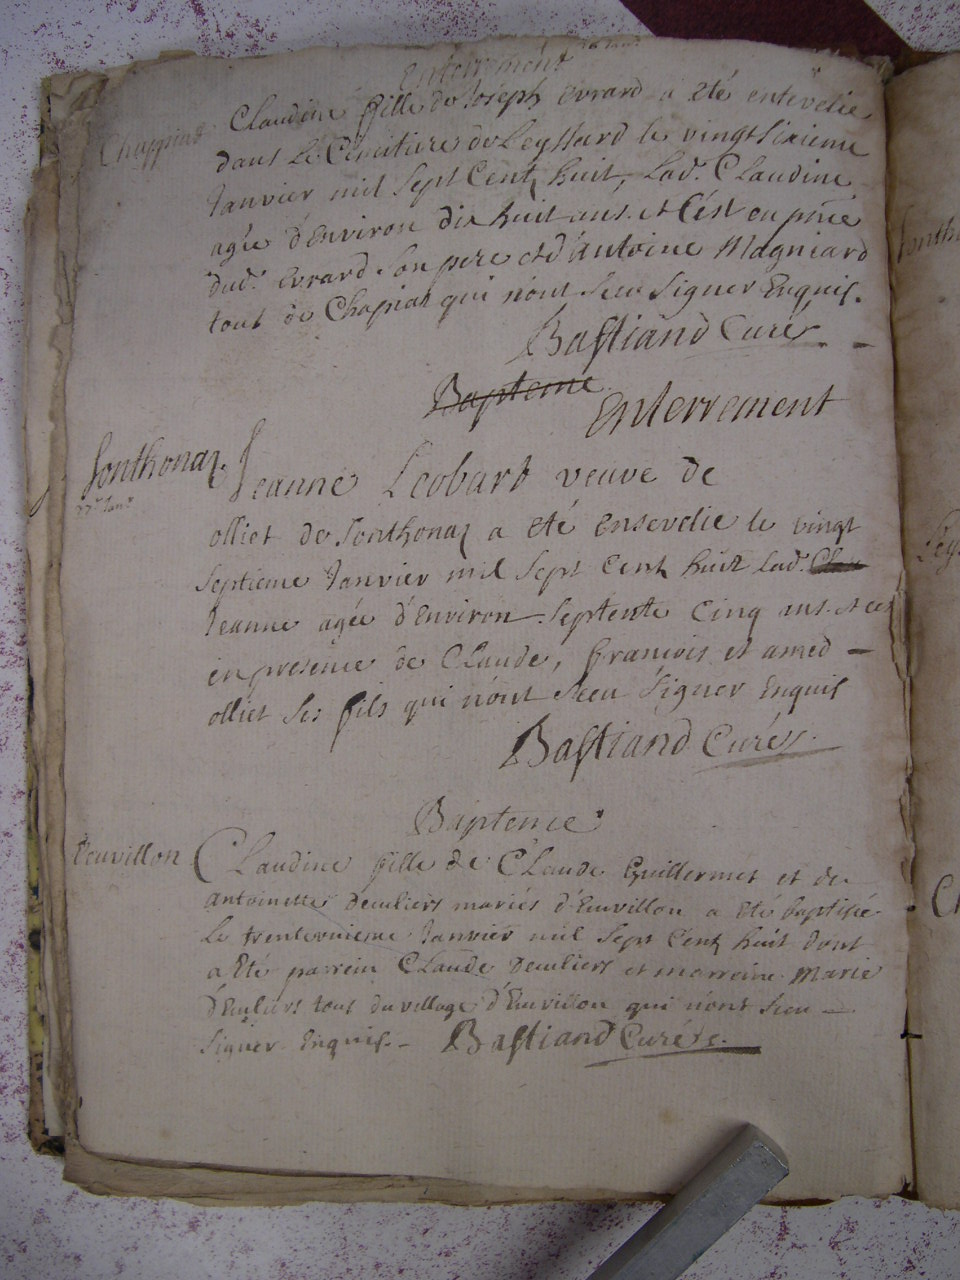 Enterrement
Claudine fille de Joseph Evrard a eté entevelie
Chappiat
dans Le Cimitiere de Leyssard le vingt sixieme
Janvier mil sept Cent huit, Lad. Claudine
agée d'Environ dix huit ans. et C'est en pñce
dud. Evrard son pere et d'Antoine Magniard
tout de Chapiat qui n'ont sceu signer Enquis.
Bastiand Curé
Bapteme
Enterrement
Sonthonaz.
27e Janr
Jeanne Leobard veuve de
olliet de Sonthonaz a eté ensevelie le vingt
septieme Janvier mil sept Cent huit Lad. Clau
Jeanne agée d'Environ septente Cinq ans. et ce
en presence de Claude, francois et amed
olliet ses fils qui n'ont sceu signer Enquis
Bastiand Curé
Baptence
Euvillon
Claudine fille de Claude Guillermet et de
Antoinette Deculiers mariés d'Euvillon a eté baptisée
Le trenteunieme Janvier mil sept Cent huit dont
a eté parrein Claude Deculiers et marreine Marie
tous du village d'Euvillon qui n'ont sceu
signer Enquis. Bastiand Curé
Sonth